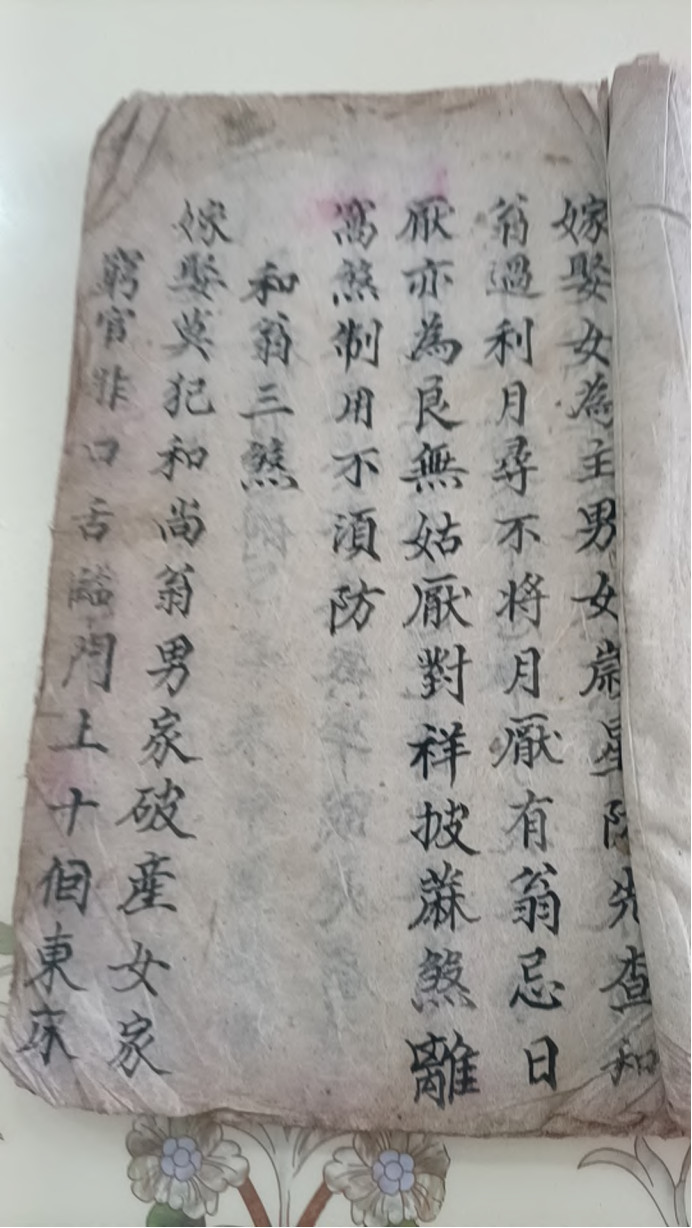 嫁娶女為主男女嵗星防先查和
翁過利月尋不将月厭有翁忌日
厭亦為良無姑厭對祥披蔴煞離
窩煞制用不湏防
和翁三煞
嫁娶莫犯和尚翁男家破産女家
窮官非口舌臨門上十個東床